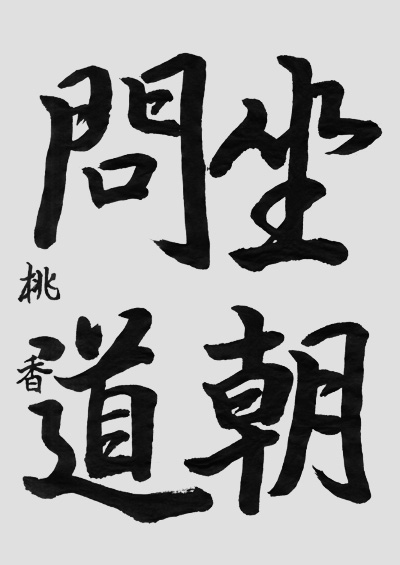 坐朝
問道
桃香